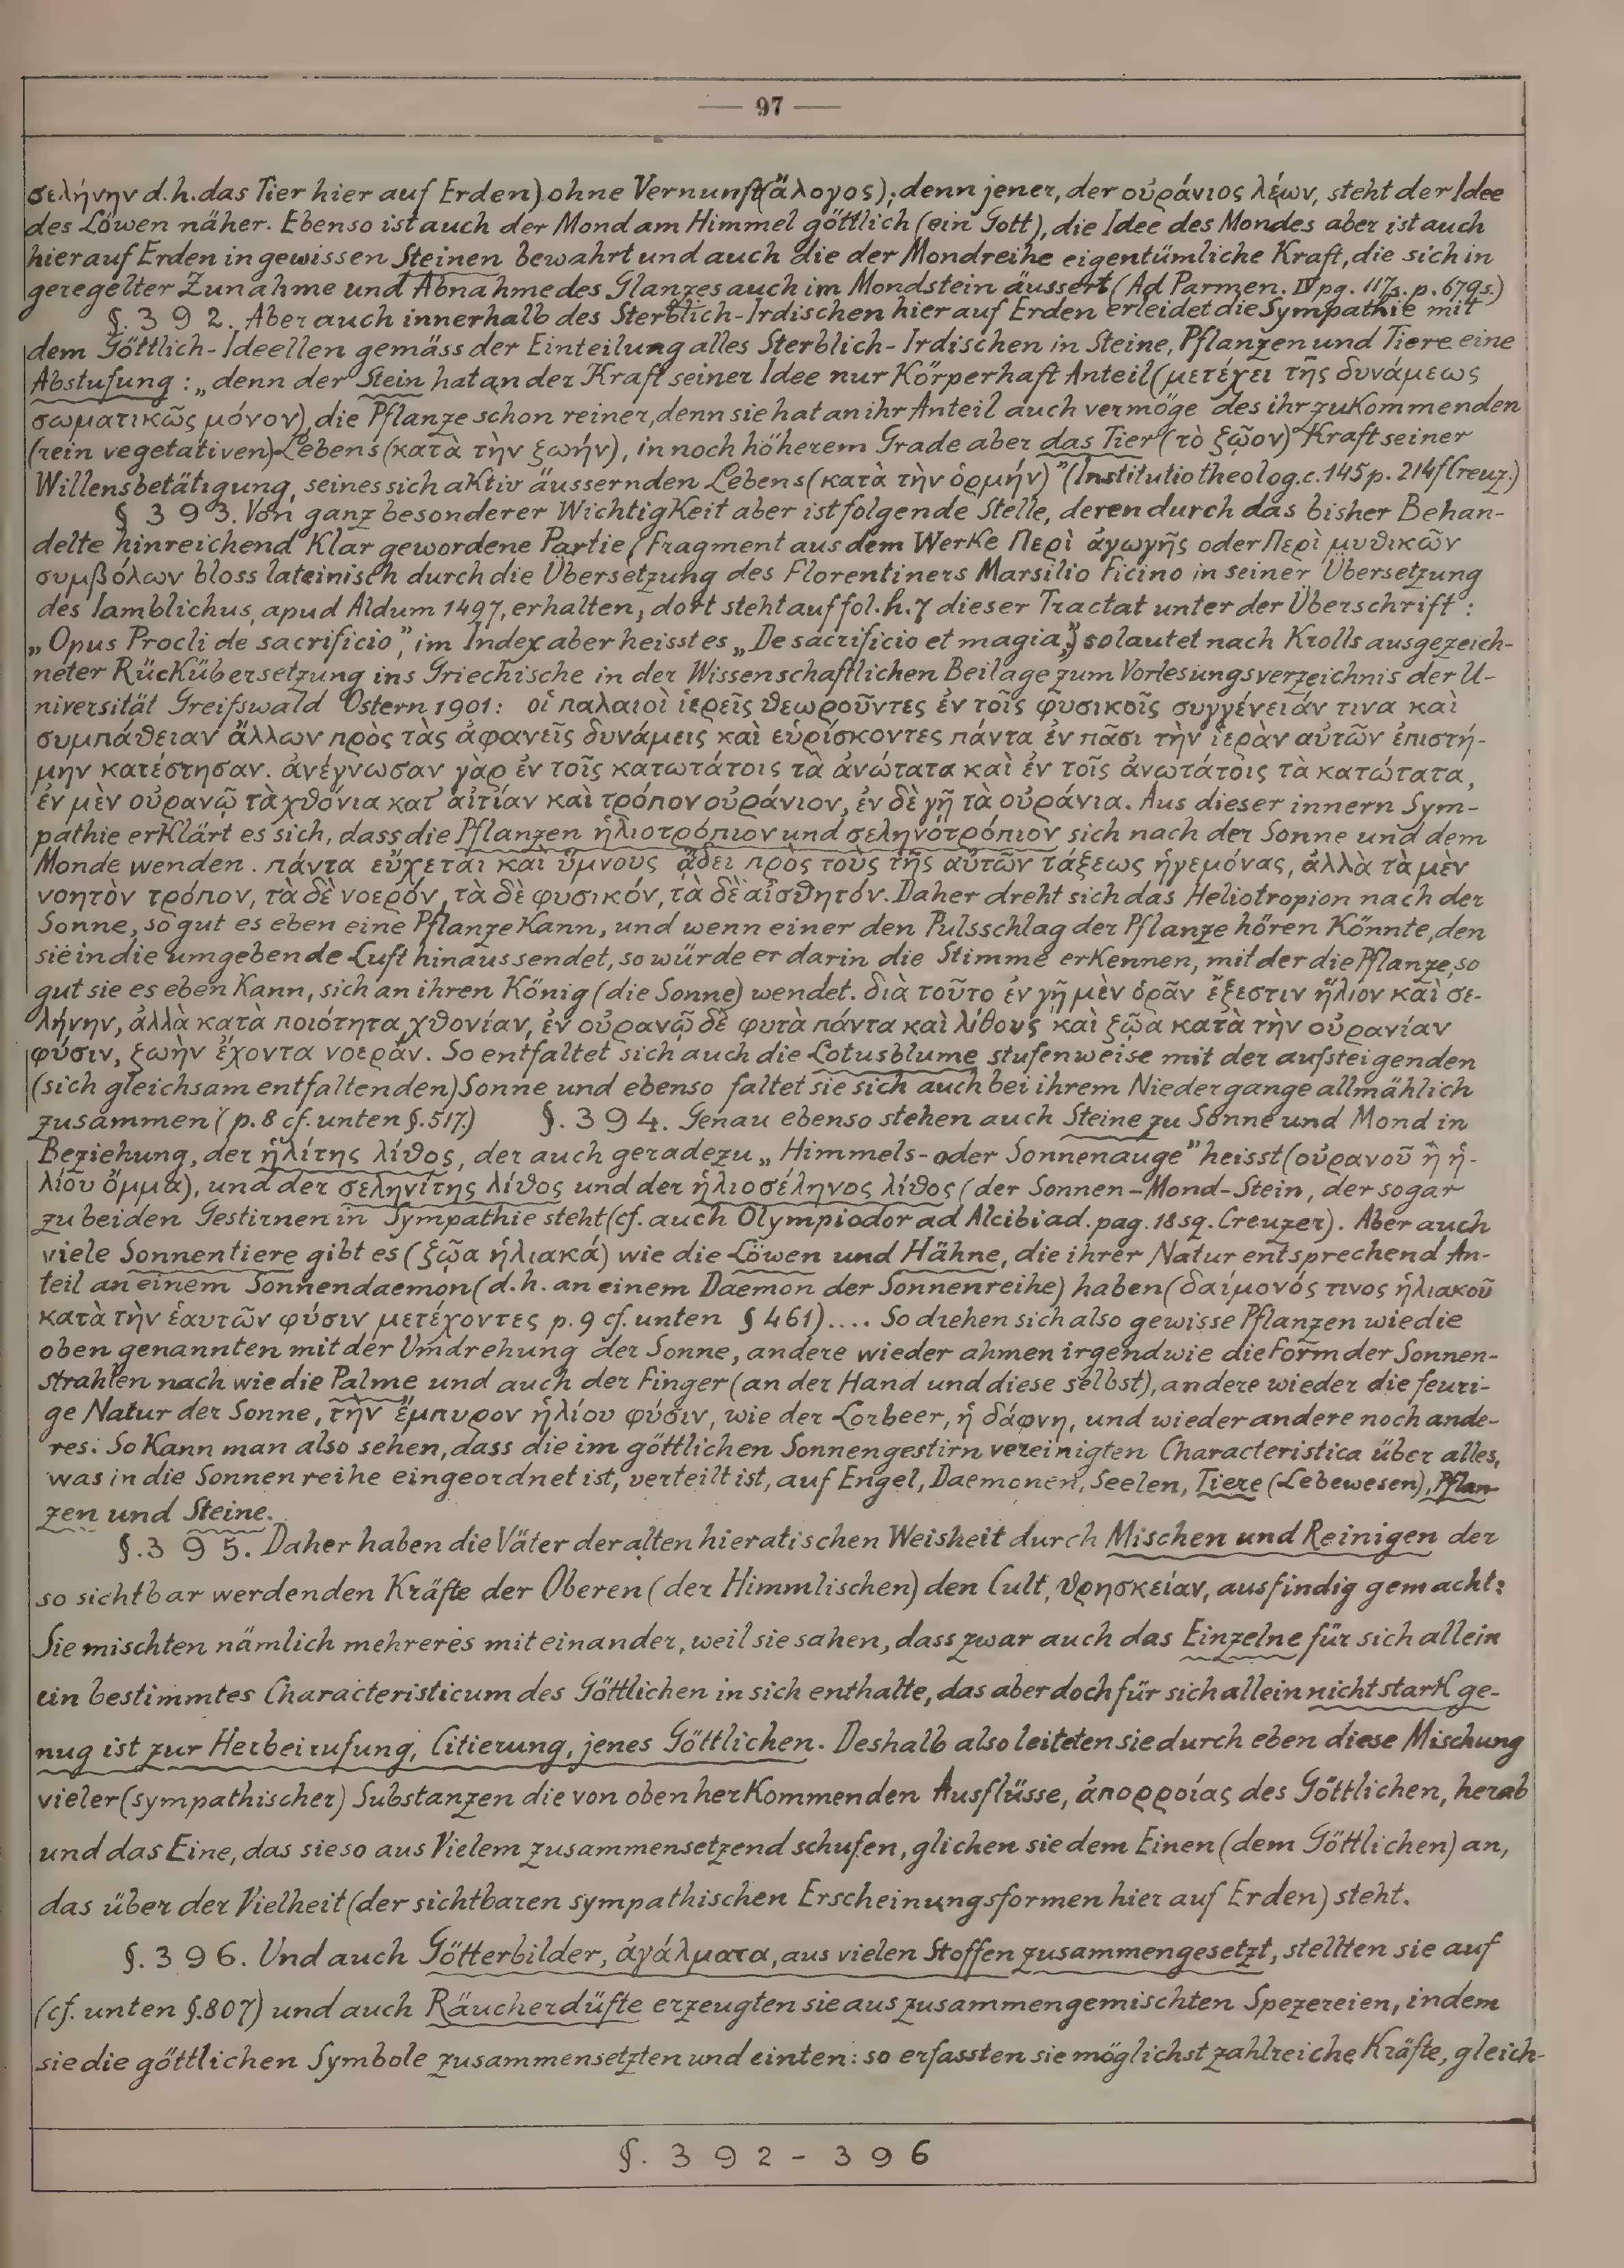 — 97 —
σελήνην d.h. das Tier hier auf Erden) ohne Vernunft (ἄλογος); denn jener, der οὐράνιος λέων, steht der Idee
des Löwen näher. Ebenso ist auch der Mond am Himmel göttlich (ein Gott), die Idee des Mondes aber ist auch
hier auf Erden in gewissen Steinen bewahrt und auch die der Mondreihe eigentümliche Kraft, die sich in
geregelter Zunahme und Abnahme des Glanzes auch im Mondstein äussert (Ad Parmen. IV pg. 117s. p. 679s.)
§. 392. Aber auch innerhalb des Sterblich-Irdischen hier auf Erden erleidet die Sympathie mit
dem Göttlich-Ideellen gemäss der Einteilung alles Sterblich-Irdischen in Steine, Pflanzen und Tiere eine
Abstufung: „denn der Stein hat an der Kraft seiner Idee nur Körperhaft Anteil (μετέχει τῆς δυνάμεως
σωματικῶς μόνον), die Pflanze schon reiner, denn sie hat an ihr Anteil auch vermöge des ihr zukommenden
(rein vegetativen) Lebens (κατὰ τὴν ξωήν), in noch höherem Grade aber das Tier (τὸ ξῷον) Kraft seiner
Willensbetätigung, seines sich aktiv äussernden Lebens (κατὰ τὴν ὁρμήν)" (Institutio theolog. c. 145 p. 214f Creuz.)
§ 393. Von ganz besonderer Wichtigkeit aber ist folgende Stelle, deren durch das bisher Behan-
delte hinreichend Klar gewordene Partie (Fragment aus dem Werke Περὶ ἀγωγῆς oder Περὶ μυθικῶν
συμβόλων bloss lateinisch durch die Übersetzung des Florentiners Marsilio Ficino in seiner Übersetzung
des Iamblichus, apud Aldum 1497, erhalten; dort steht auf fol. h. 7 dieser Tractat unter der Überschrift:
„Opus Procli de sacrificio", im Index aber heisst es „De sacrificio et magia") so lautet nach Krolls ausgezeich-
neter Rückübersetzung ins Griechische in der Wissenschaftlichen Beilage zum Vorlesungsverzeichnis der U-
niversität Greifswald Ostern 1901: οἱ παλαιοὶ ἱερεῖς θεωροῦντες ἐν τοῖς φυσικοῖς συγγένειάν τινα καὶ
συμπάθειαν ἄλλων πρὸς τὰς ἀφανεῖς δυνάμεις καὶ εὑρίσκοντες πάντα ἐν πᾶσι τὴν ἱερὰν αὐτῶν ἐπιστή-
μην κατέστησαν. ἀνέγνωσαν γὰρ ἐν τοῖς κατωτάτοις τὰ ἀνώτατα καὶ ἐν τοῖς ἀνωτάτοις τὰ κατώτατα,
ἐν μὲν οὐρανῷ τὰ χθόνια κατ' αἰτίαν καὶ τρόπον οὐράνιον, ἐν δὲ γῇ τὰ οὐράνια. Aus dieser innern Sym-
pathie erklärt es sich, dass die Pflanzen ἡλιοτρόπιον und σεληνοτρόπιον sich nach der Sonne und dem
Monde wenden. πάντα εὔχεται καὶ ὕμνους ᾄδει πρὸς τοὺς τῆς αὐτῶν τάξεως ἡγεμόνας, ἀλλὰ τὰ μὲν
νοητὸν τρόπον, τὰ δὲ νοερόν, τὰ δὲ φυσικόν, τὰ δὲ αἰσθητόν. Daher dreht sich das Heliotropion nach der
Sonne, so gut es eben eine Pflanze Kann, und wenn einer den Pulsschlag der Pflanze hören Könnte, den
sie in die umgebende Luft hinaussendet, so würde er darin die Stimme erkennen, mit der die Pflanze, so
gut sie es eben Kann, sich an ihren König (die Sonne) wendet. διὰ τοῦτο ἐν γῇ μὲν ὁρᾶν ἔξεστιν ἥλιον καὶ σε-
λήνην, ἀλλὰ κατὰ ποιότητα χθονίαν, ἐν οὐρανῷ δὲ φυτὰ πάντα καὶ λίθους καὶ ξῷα κατὰ τὴν οὐρανίαν
φύσιν, ξωὴν ἔχοντα νοεράν. So entfaltet sich auch die Lotusblume stufenweise mit der aufsteigenden
(sich gleichsam entfaltenden) Sonne und ebenso faltet sie sich auch bei ihrem Niedergange allmählich
zusammen (p. 8 cf. unten §. 517.) §. 394. Genau ebenso stehen auch Steine zu Sonne und Mond in
Beziehung, der ἡλίτης λίθος, der auch geradezu „Himmels- oder Sonnenauge" heisst (οὐρανοῦ ἢ ἡ-
λίου ὄμμα), und der σεληνίτης λίθος und der ἡλιοσέληνος λίθος (der Sonnen-Mond-Stein, der sogar
zu beiden Gestirnen in Sympathie steht (cf. auch Olympiodor ad Alcibiad. pag. 18 sq. Creuzer). Aber auch
viele Sonnentiere gibt es (ξῷα ἡλιακά) wie die Löwen und Hähne, die ihrer Natur entsprechend An-
teil an einem Sonnendaemon (d.h. an einem Daemon der Sonnenreihe) haben (δαίμονός τινος ἡλιακοῦ
κατὰ τὴν ἑαυτῶν φύσιν μετέχοντες p. 9 cf. unten § 461).... So drehen sich also gewisse Pflanzen wie die
oben genannten mit der Umdrehung der Sonne, andere wieder ahmen irgendwie die Form der Sonnen-
strahlen nach wie die Palme und auch der Finger (an der Hand und diese selbst), andere wieder die feuri-
ge Natur der Sonne, τὴν ἔμπυρον ἡλίου φύσιν, wie der Lorbeer, ἡ δάφνη, und wieder andere noch ande-
res: So Kann man also sehen, dass die im göttlichen Sonnengestirn vereinigten Characteristica über alles,
was in die Sonnenreihe eingeordnet ist, verteilt ist, auf Engel, Daemonen, Seelen, Tiere (Lebewesen), Pflan-
zen und Steine.
§. 395. Daher haben die Väter der alten hieratischen Weisheit durch Mischen und Reinigen der
so sichtbar werdenden Kräfte der Oberen (der Himmlischen) den Cult, θρησκείαν, ausfindig gemacht:
Sie mischten nämlich mehreres miteinander, weil sie sahen, dass zwar auch das Einzelne für sich allein
ein bestimmtes Characteristicum des Göttlichen in sich enthalte, das aber doch für sich allein nicht stark ge-
nug ist zur Herbeirufung, Citierung, jenes Göttlichen. Deshalb also leiteten sie durch eben diese Mischung
vieler (sympathischer) Substanzen die von oben herkommenden Ausflüsse, ἀπορροίας des Göttlichen, herab
und das Eine, das sie so aus Vielem zusammensetzend schufen, glichen sie dem Einen (dem Göttlichen) an,
das über der Vielheit (der sichtbaren sympathischen Erscheinungsformen hier auf Erden) steht.
§. 396. Und auch Götterbilder, ἀγάλματα, aus vielen Stoffen zusammengesetzt, stellten sie auf
(cf. unten §. 807) und auch Räucherdüfte erzeugten sie aus zusammengemischten Spezereien, indem
sie die göttlichen Symbole zusammensetzten und einten: so erfassten sie möglichst zahlreiche Kräfte, gleich-
§. 392 - 396